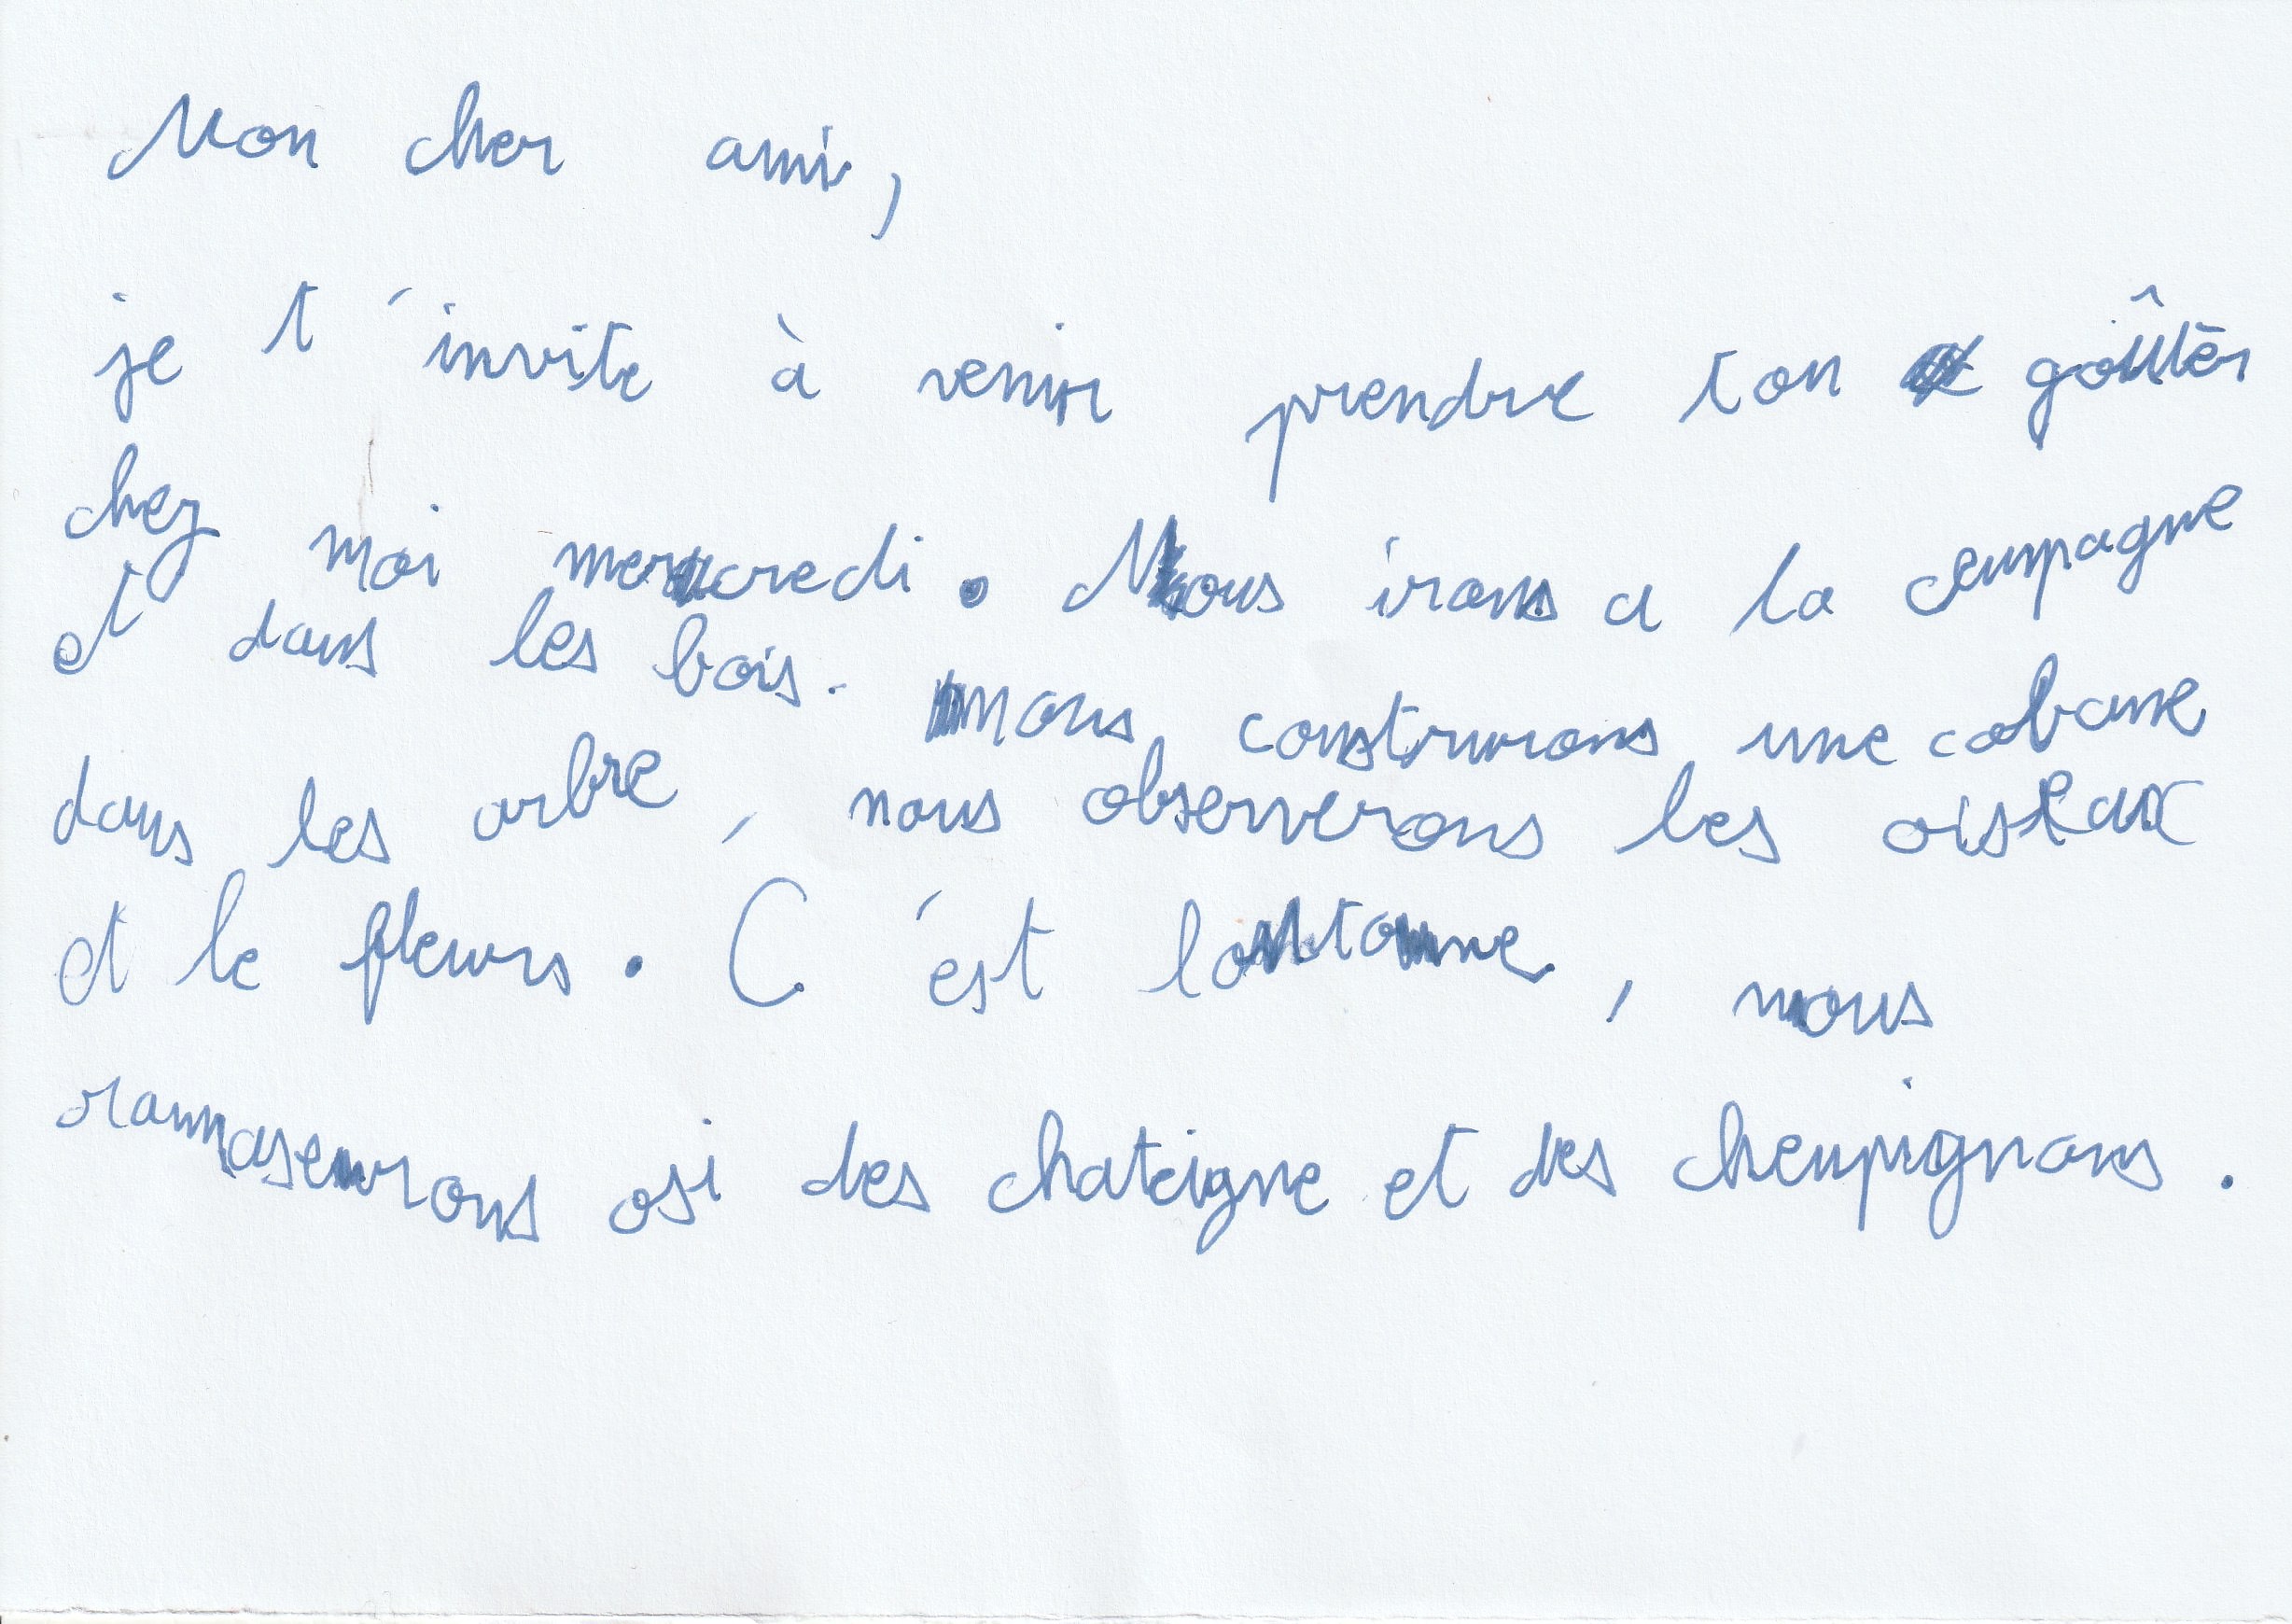 Mon cher ami,
je t'invite à venir prendre ton goûter
chez moi mercredi. Nous irons a la cempagne
et dans les bois. nous construirons une cabane
dans les arbre, nous observerons les oiseaux
et le fleurs. C'est lautonne, nous
ramaserons osi des chateigne et des chenpignons.